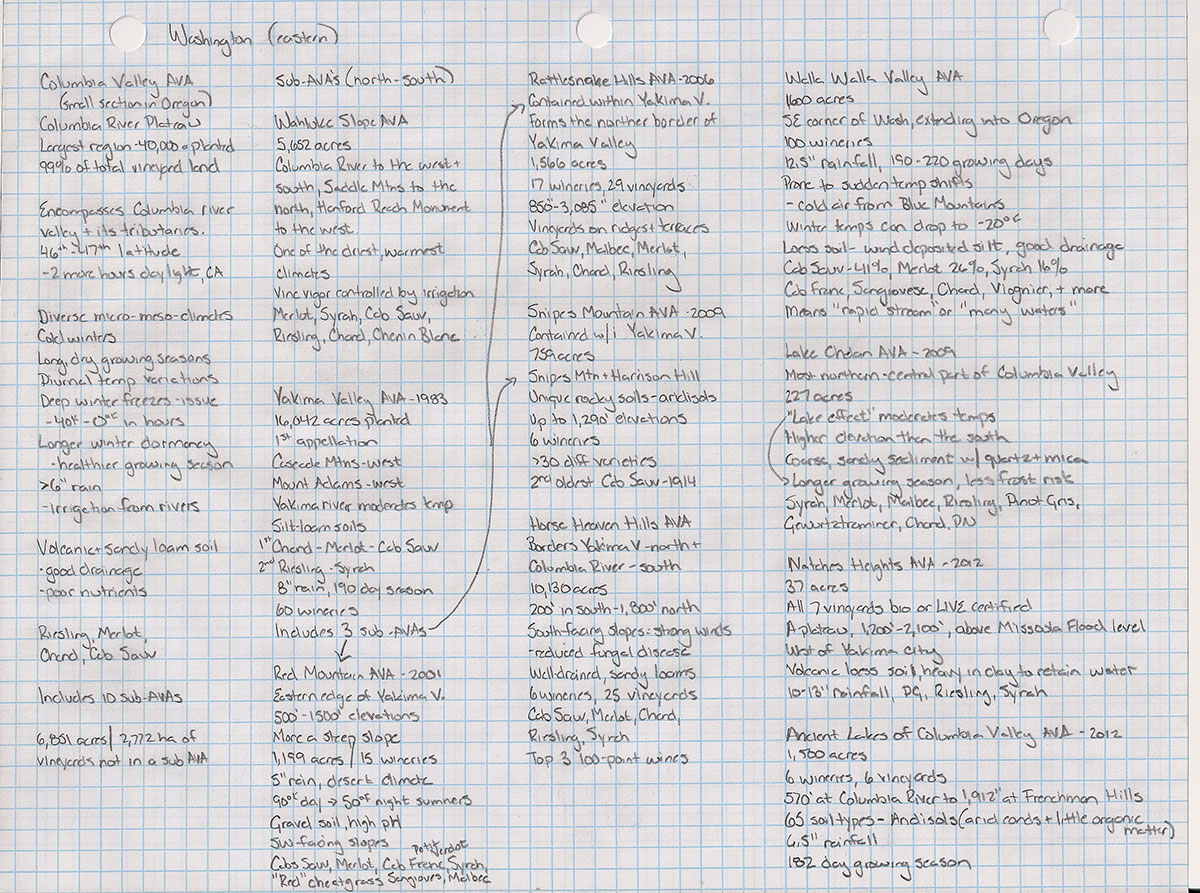 Washington (eastern)
Columbia Valley AVA
(small section in Oregon)
Columbia River Plateau
Largest region-40,000a planted
99% of total vineyard land
Encompasses Columbia river
valley + its tributaries.
46th-47th latitude
-2 more hours daylight, CA
Diverse micro-meso-climates
Cold winters
Long, dry growing seasons
Diurnal temp variations
Deep winter freezes-issue
-40F-0°F in hours
Longer winter dormancy
-healthier growing season
>6" rain
-irrigation from rivers
Volcanic + sandy loam soil
-good drainage
-poor nutrients
Riesling, Merlot,
Chard, Cab Sauv
Includes 10 sub-AVAs
6,851 acres/2,772 ha of
vineyards not in a sub AVA
Sub-AVA's (north-south)
Wahluke Slope AVA
5,652 acres
Columbia River to the west +
south, Saddle Mtns to the
north, Hanford Reach Monument
to the west.
One of the driest, warmest
climates
Vine vigor controlled by irrigation
Merlot, Syrah, Cab Sauv,
Riesling, Chard, Chenin Blanc
Yakima Valley AVA-1983
16,042 acres planted
1st appellation
Cascade Mtns-west
Mount Adams-west
Yakima river moderates temp
Silt-loam soils
1st Chard-Merlot-Cab Sauv
2nd Riesling-Syrah
8" rain, 190 day season
60 wineries
Includes 3 sub-AVAs
Red Mountain AVA-2001
Eastern edge of Yakima V.
500'-1500' elevations
More a steep slope
1,199 acres / 15 wineries
5" rain, desert climate
90°F day → 50°F night summers
Gravel soil, high pH
SW-facing slopes
Petit Verdot
Cabs Sauv, Merlot, Cab Franc, Syrah,
"Red" cheatgrass Sangioves, Malbec
Rattlesnake Hills AVA-2006
Contained within Yakima V.
Forms the norther border of
Yakima Valley
1,566 acres
17 wineries, 29 vineyards
850'-3,085" elevation
Vineyards on ridges + terraces
Cab Sauv, Malbec, Merlot,
Syrah, Chard, Riesling
Snipes Mountain AVA-2009
Contained w/i Yakima V.
759 acres
Snipes Mtn + Harrison Hill
Unique rocky soils-aridisols
Up to 1,290' elevations
6 wineries
>30 diff varieties
2nd oldest Cab Sauv-1914
Horse Heaven Hills AVA
Borders Yakima V-north +
Columbia River-south
10,130 acres
200' in south-1,800' north
South-facing slopes-strong winds
-reduced fungal disease
Well-drained, sandy looms
6 wineries, 25 vineyards
Cab Sauv, Merlot, Chard,
Riesling, Syrah
Top 3 100-point wines
Walla Walla Valley AVA
1600 acres
SE corner of Wash, extending into Oregon
100 wineries
12.5" rainfall, 190-220 growing days
Prone to sudden temp shifts
-cold air from Blue Mountains
Winter temps can drop to -20°F
Loess soil-wind deposited silt, good drainage
Cab Sauv-41%, Merlot 26%, Syrah 16%
Cab Franc, Sangiovese, Chard, Viognier, + more
Means "rapid stream" or "many waters"
Lake Chelan AVA-2009
Most northern-central part of Columbia Valley
227 acres
"Lake effect" moderates temps
Higher elevation then the south
Coarse, sandy sediment w/ quartz + mica
Longer growing season, less frost risk
Syrah, Merlot, Malbec, Riesling, Pinot Gris,
Gewurtztraminer, Chard, PN
Natches Heights AVA-2012
37 acres
All 7 vineyards bio or LIVE certified
A plateau, 1,200'-2,100', above Missoula Flood level
West of Yakima City
Volcanic loess soil, heavy in clay to retain water
10-13" rainfall, PG, Riesling, Syrah
Ancient Lakes of Columbia Valley AVA-2012
1,500 acres
6 wineries, 6 vineyards
570' at Columbia River to 1,912" at Frenchman Hills
65 soil types-Andisols (arid conds + little organic
matter)
6.5" rainfall
182 day growing season